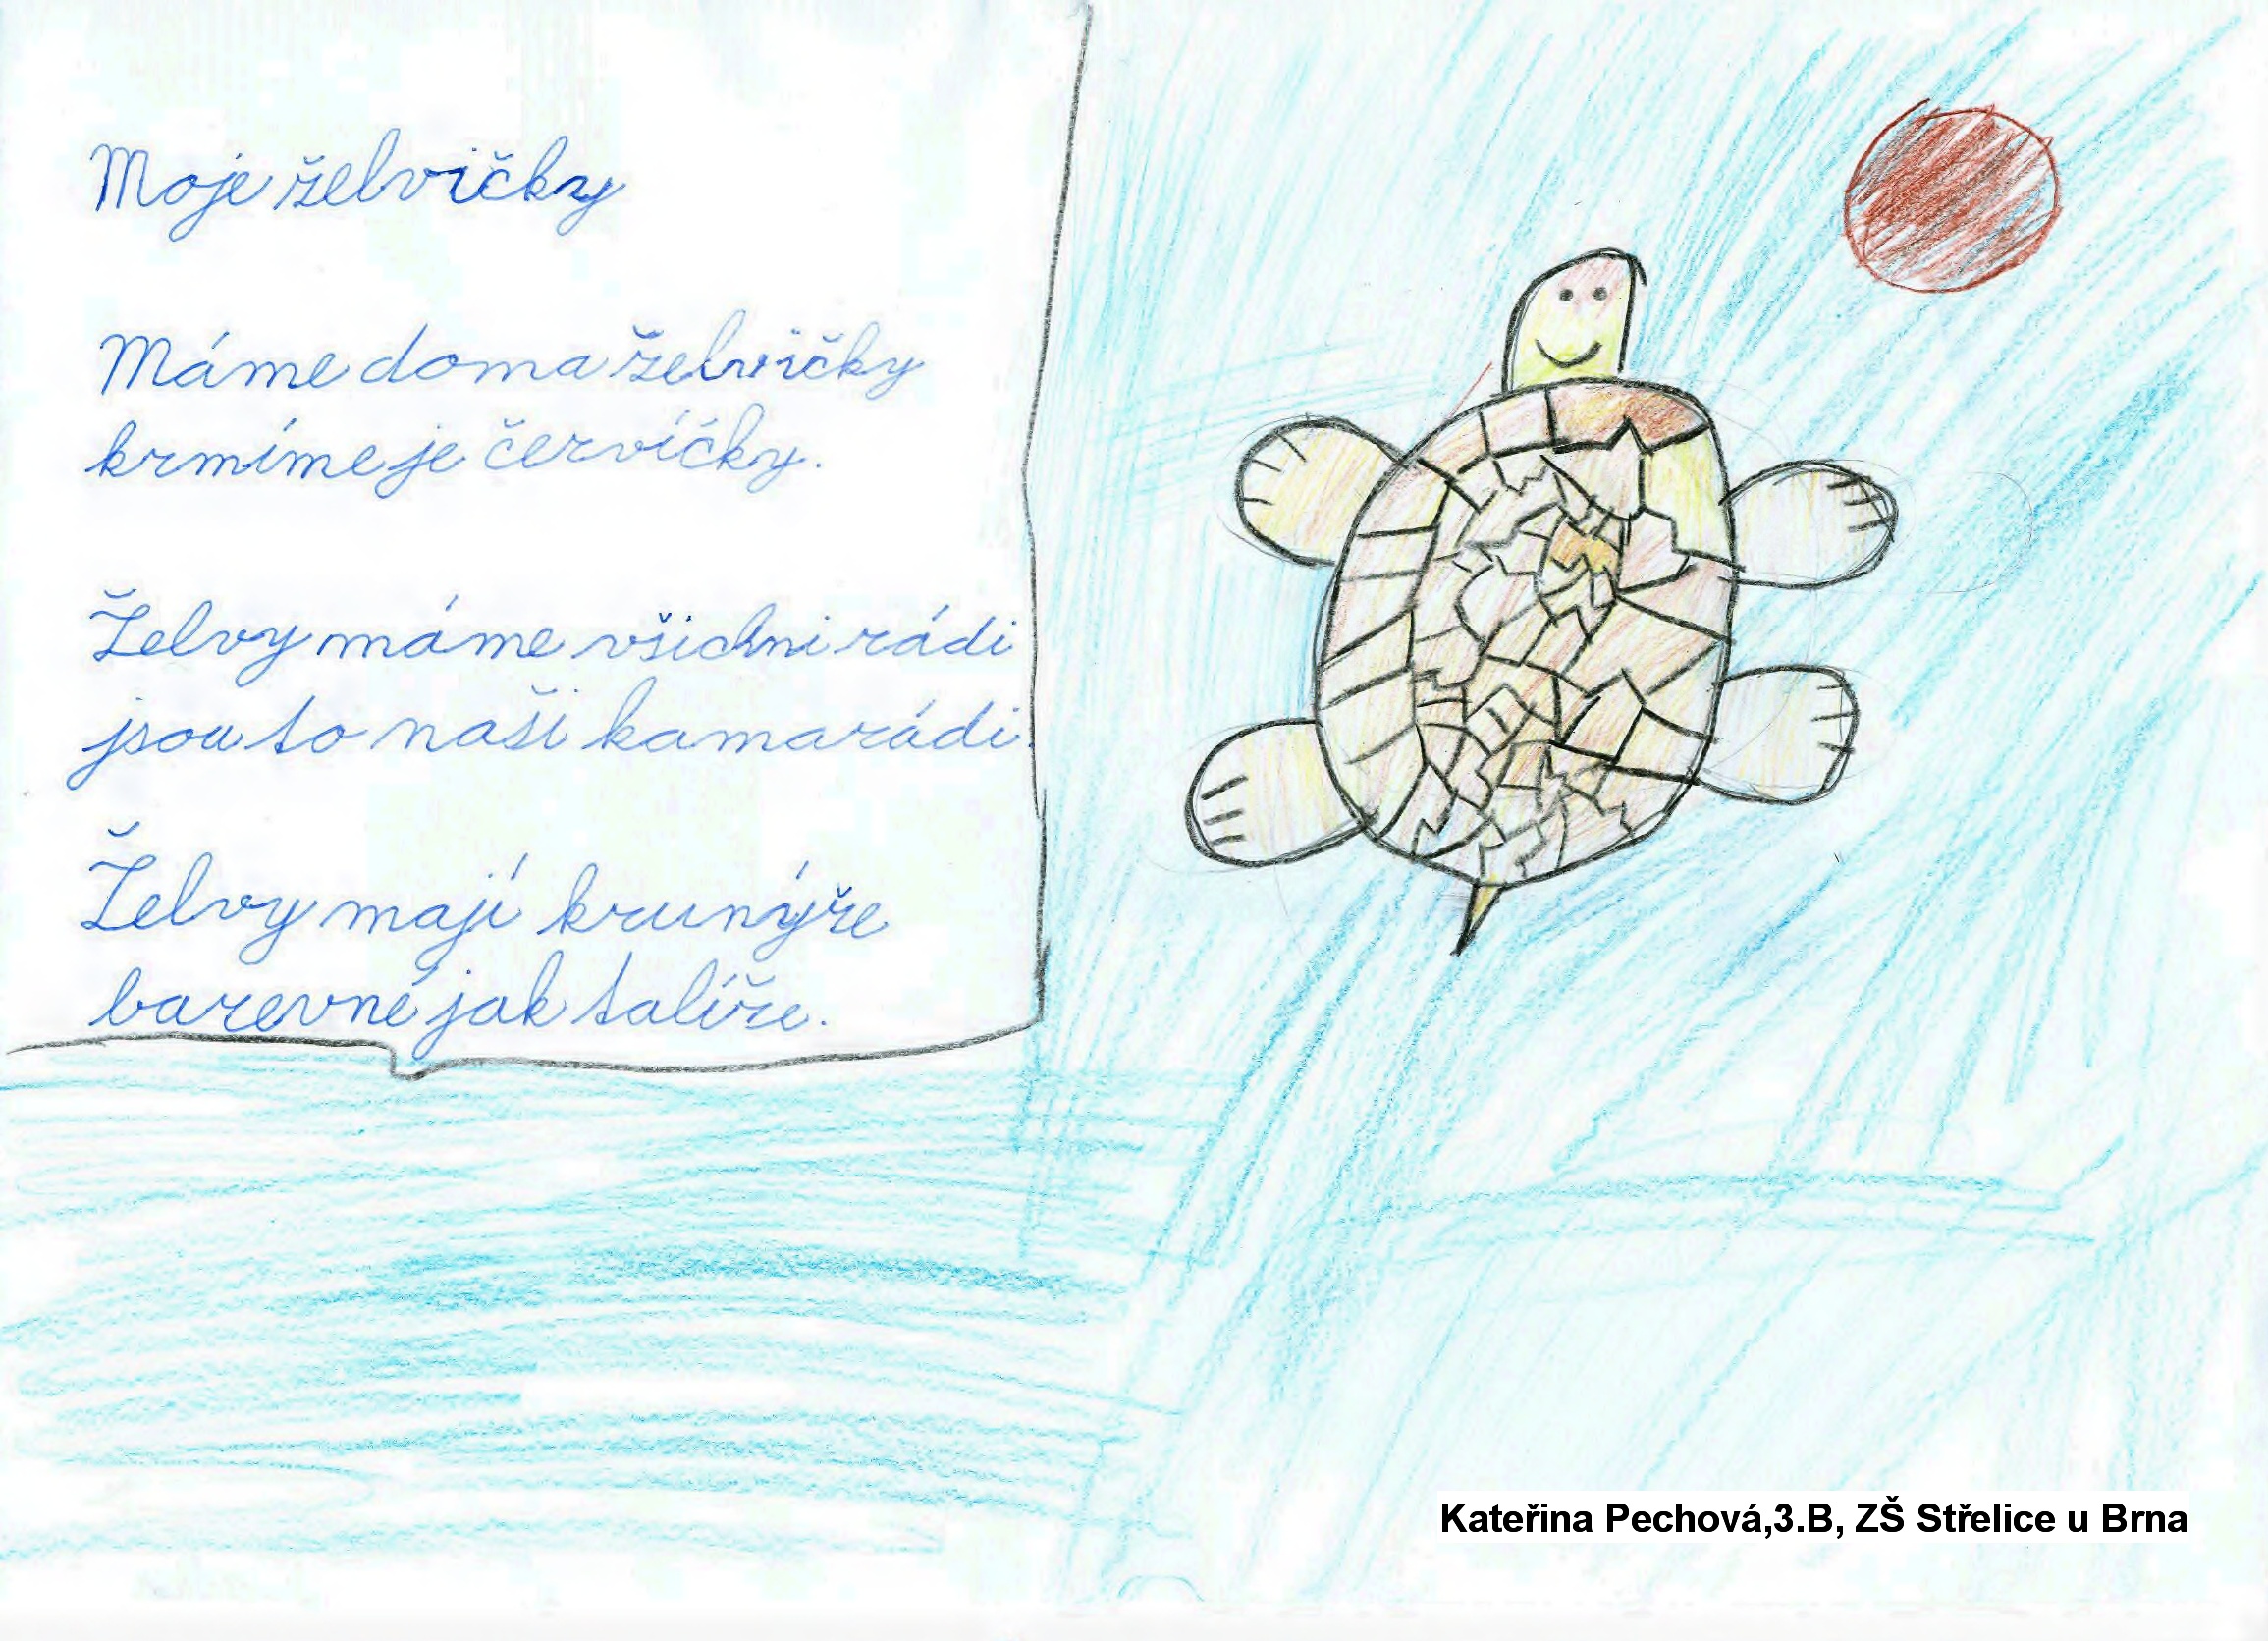 Moje želvičky
Máme doma želvičky
krmíme je červíčky.
Želvy máme všichni rádi
jsou to naši kamarádi.
Želvy mají krunýře
barevné jak talíře.
Kateřina Pechová,3.B, ZŠ Střelice u Brna